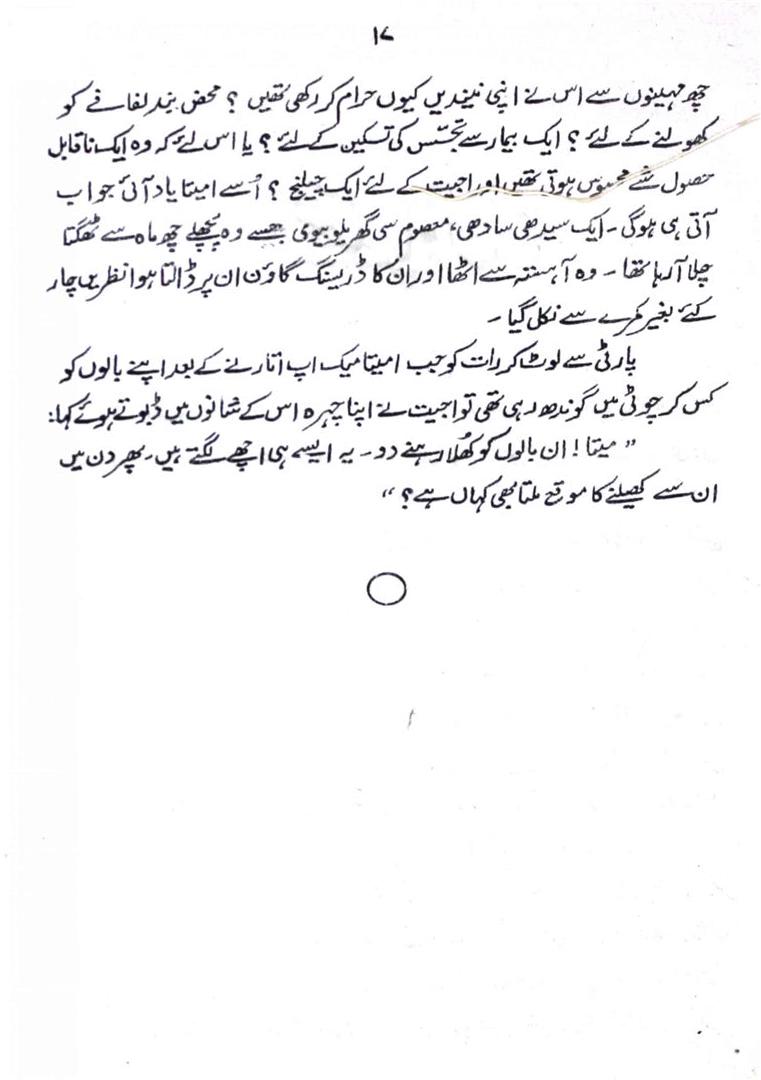 ۱۷
چھ مہینوں سے اس نے اپنی نیندیں کیوں حرام کر رکھی تھیں ؟ محض بند لفافے کو
کھولنے کے لئے ؟ ایک بیمار سے تجسّس کی تسکین کے لئے ؟ یا اس لئے کہ وہ ایک ناقابل
حصول شے محسوس ہوتی تھیں اور اجیت کے لئے ایک چیلنج ؟ اُسے امیتا یاد آئی جو اب
آتی ہی ہوگی ۔ ایک سیدھی سادھی، معصوم سی گھریلو بیوی جسے وہ پچھلے چھ ماہ سے ٹھگتا
چلا آ رہا تھا ۔ وہ آہستہ سے اٹھا اور ان کا ڈریسنگ گاؤن ان پر ڈالتا ہوا نظریں چار
کئے بغیر کمرے سے نکل گیا ۔
پارٹی سے لوٹ کر رات کو جب امیتا میک اپ اتارنے کے بعد اپنے بالوں کو
کس کر چوٹی میں گوندھ رہی تھی تو اجیت نے اپنا چہرہ اس کے شانوں میں ڈبوتے ہوئے کہا :
” میتا ! ان بالوں کو کھُلا رہنے دو ۔ یہ ایسے ہی اچھے لگتے ہیں ۔ پھر دن میں
ان سے کھیلنے کا موقع ملتا بھی کہاں ہے ؟ “